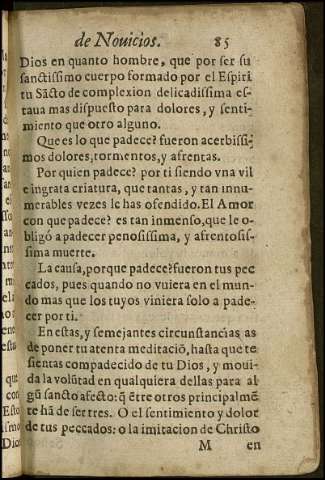 de Novicios. 85
Dios en quanto hombre, que por ser su
sanctissimo cuerpo formado por el Espiri
tu Sãcto de complexion delicadissima es-
taua mas dispuesto para dolores, y senti-
miento que otro alguno.
Que es lo que padece? fueron acerbissi-
mos dolores, tormentos, y afrentas.
Por quien padece? por ti siendo vna vil
e ingrata criatura, que tantas, y tan innu-
merables vezes le has ofendido. El Amor
con que padece? es tan inmenso, que le o-
bligó a padecer penosissima, y afrentosis-
sima muerte.
La causa, porque padece? fueron tus pec
cados, pues quando no vuiera en el mun-
do mas que los tuyos viniera solo a pade-
cer por ti.
En estas, y semejantes circunstancias as
de poner tu atenta meditaciõ, hasta que te
sientas compadecido de tu Dios, y moui-
da la volũtad en qualquiera dellas para al
gũ sancto afecto: q̃ ẽtre otros principalmẽ
te hã de ser tres. O el sentimiento y dolor
de tus peccados: o la imitacion de Christo
M en